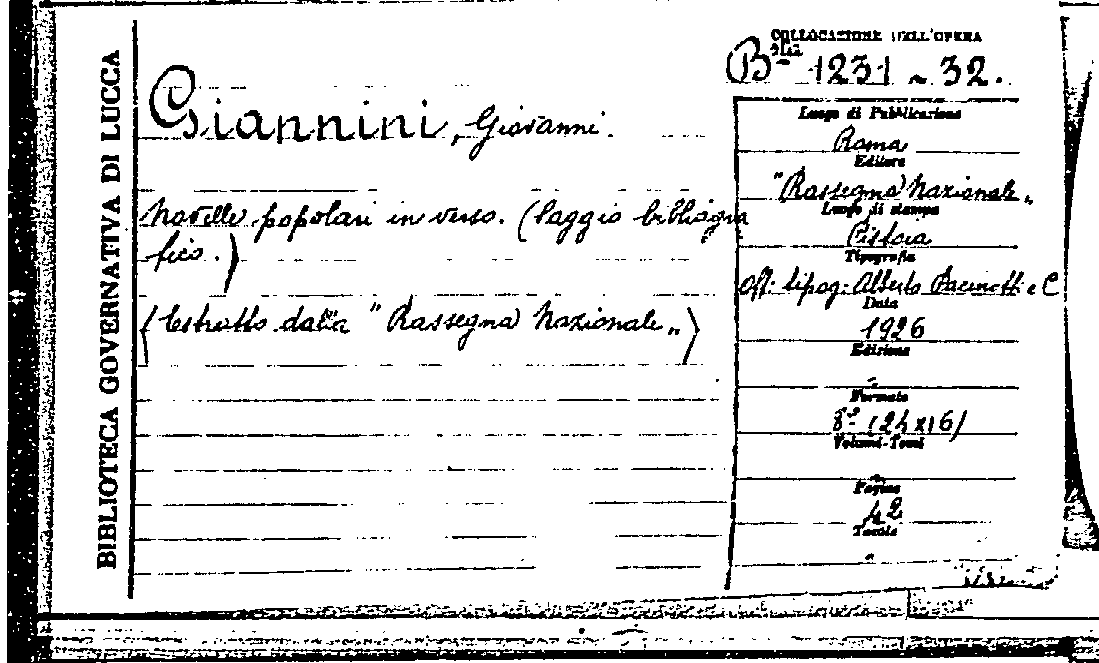 BIBLIOTECA GOVERNATIVA DI LUCCA
Giannini, Giovanni.
Novelle popolari in verso. (Saggio bibliogra
fico.)
(Estratto dalla "Rassegna Nazionale„)
COLLOCAZIONE DELL'OPERA
Bta 1231 ~ 32.
Luogo di Pubblicazione
Roma
Editore
"Rassegna Nazionale„
Luogo di stampa
Pistoia
Tipografia
Off: tipog: Alberto Pacinotti e C
Data
1926
Edizione
Formato
8° (24x16)
Volumi-Tomi
Pagine
42
Tavole